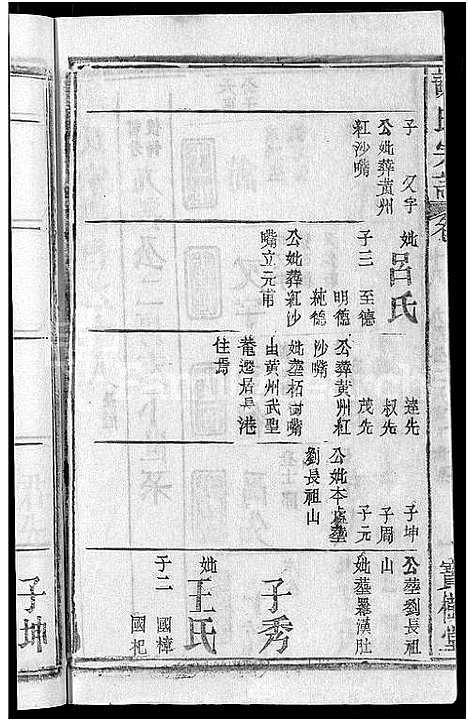 子 久宇
公妣葬黄州
紅沙嘴
妣呂氏
子三 至德
明德
純德
公妣葬紅沙
嘴立元甫
逵先
叔先
茂先
公葬黄州紅
沙嘴
妣塟柘樹嘴
由黄州武聖
菴遷居長港
住焉
子坤
子周
子元
公妣本處塟
劉長祖山
公塟劉長祖
山
妣塟羅漢肚
子秀
妣王氏
子二 國樟
國杞
寶樹堂
子坤